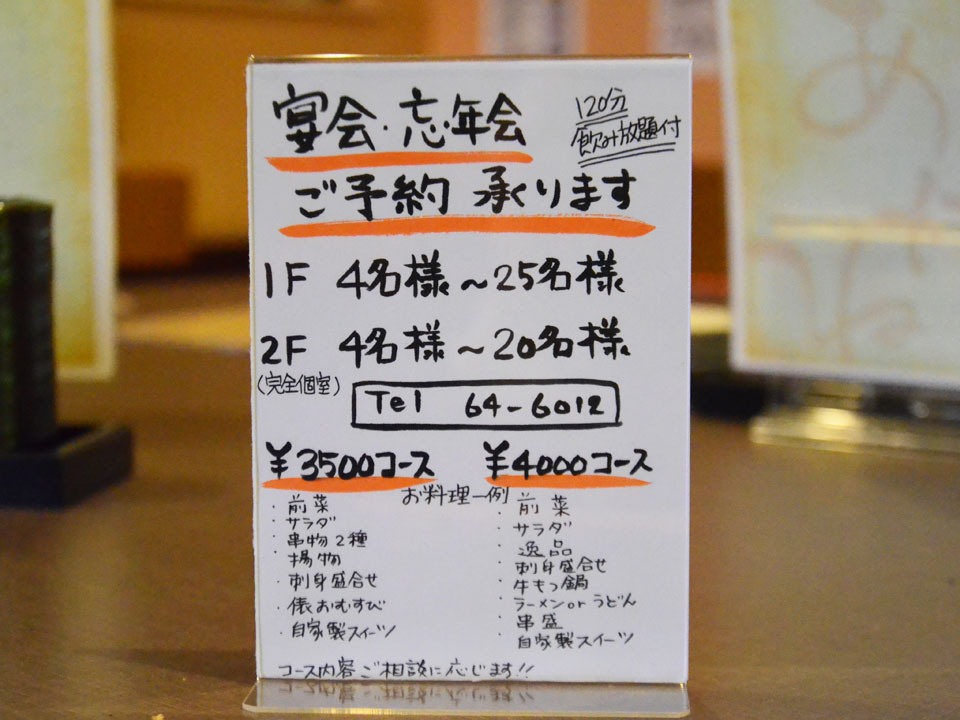 宴会・忘年会
120分
飲み放題付
ご予約 承ります
1F 4名様~25名様
2F 4名様~20名様
(完全個室)
Tel 64-6012
¥3500コース
¥4000コース
お料理一例
・前菜
・サラダ
・串物2種
・揚物
・刺身盛合せ
・俵おむすび
・自家製スイーツ
・前菜
・サラダ
・逸品
・刺身盛合せ
・牛もつ鍋
・ラーメンorうどん
・串盛
・自家製スイーツ
コース内容ご相談に応じます!!